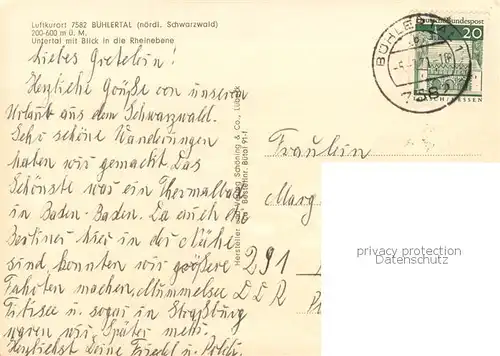 Luftkurort 7582 BÜHLERTAL (nördl. Schwarzwald)
200-600 m Ü. M.
Untertal mit Blick in die Rheinebene
Liebes Gretelein!
Herzliche Grüße von unserem
Urlaub aus dem Schwarzwald.
Sehr schöne Wanderungen
haben wir gemacht. Das
Schönste war ein Thermalbad
in Baden-Baden. Da auch die
Berliner hier in der Nähe
sind, konnten wir größere
Fahrten machen, Mummelsee
Titisee u. sogar in Straßburg
waren wir. Später mehr.
Herzlichst Deine Friedl u.
Hersteller Schöning & Co., Lübeck
Bestellnr. Bütal 91-f
BÜHLERTAL 1
7582
Deutsche Bundespost
20
LORSCH/HESSEN
Fräulein
Marg
291
DDR
privacy protection
Datenschutz